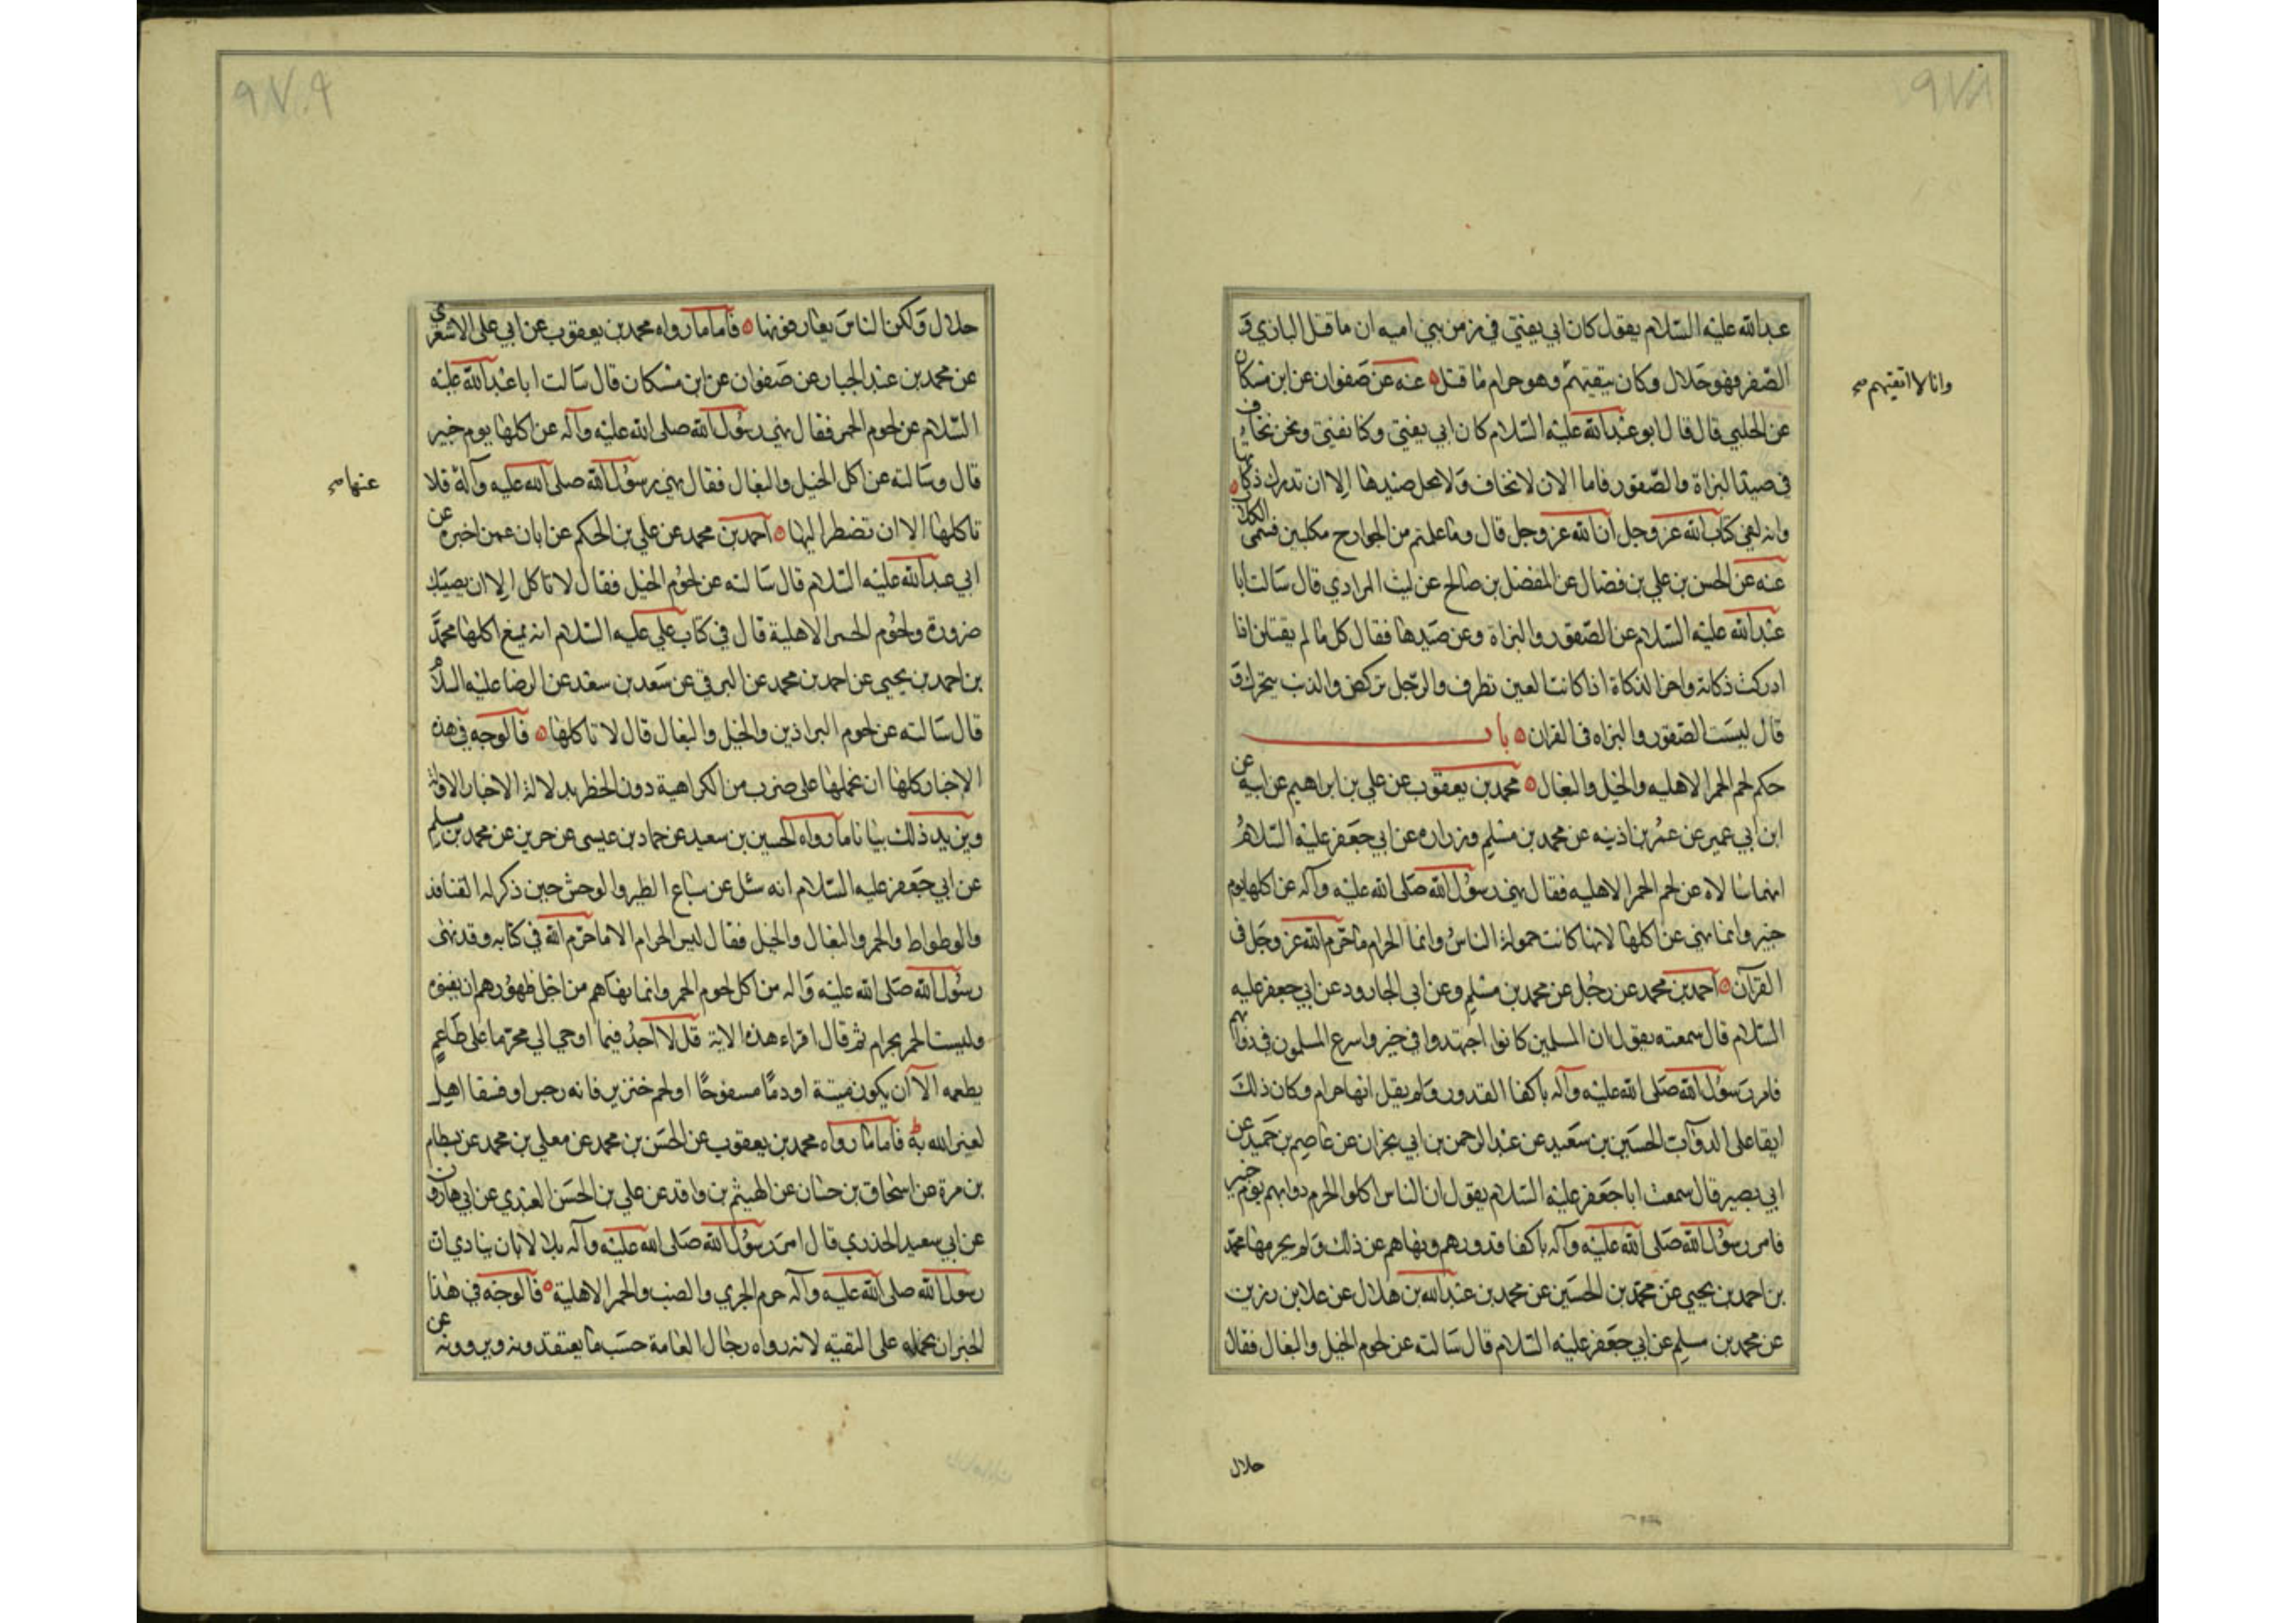 ٩٧٨
عبدالله عليه السلام يقول كان ابي يفتي في زمن بني اميه ان ما قتل البازي و
الصقر فهو حلال وكان يتقيهم وهو حرام ما قتل عنه عن صفوان عن ابن مسكان
وانا لا اتقيهم صح
عن الحلبي قال قال ابو عبدالله عليه السلام كان ابي يفتي وكنا نفتي ونحن نخاف
في صيد البزاة والصقور فاما الان لا نخاف ولا يحل صيدها الا ان تدرك ذكاتها
وانه لفي كتاب الله عز وجل ان الله عز وجل قال وما علمتم من الجوارح مكلبين فسمى الكلاب
عنه عن الحسن بن علي بن فضال عن المفضل بن صالح عن ليث المرادي قال سالت ابا
عبدالله عليه السلام عن الصقور والبزاة وعن صيدها فقال كل ما لم يقتلن اذا
ادركت ذكاته واخر الذكاة اذا كانت العين تطرف والرجل تركض والذنب يتحرك و
قال ليست الصقور والبزاه في القران باب
حكم لحم الحمر الاهليه والخيل والبغال محمد بن يعقوب عن علي بن ابراهيم عن ابيه عن
ابن ابي عمير عن عمر بن اذينه عن محمد بن مسلم وزراره عن ابي جعفر عليه السلام
انهما سالاه عن لحم الحمر الاهليه فقال نهى رسول الله صلى الله عليه وآله عن اكلها يوم
خيبر وانما نهى عن اكلها لانها كانت حمولة الناس وانما الحرام ما حرم الله عز وجل في
القرآن احمد بن محمد عن رجل عن محمد بن مسلم وعن ابي الجارود عن ابي جعفر عليه
السلام قال سمعته يقول ان المسلمين كانوا اجتهدوا في خيبر واسرع المسلمون في دوابهم
فامر رسول الله صلى الله عليه وآله باكفا القدور ولم يقل انها حرام وكان ذلك
ابقا على الدواب الحسين بن سعيد عن عبد الرحمن بن ابي نجران عن عاصم بن حميد عن
ابي بصير قال سمعت ابا جعفر عليه السلام يقول ان الناس اكلوا لحوم دوابهم يوم خيبر
فامر رسول الله صلى الله عليه وآله باكفا قدورهم ونهاهم عن ذلك ولم يحرمها محمد
بن احمد بن يحيي عن محمد بن الحسين عن محمد بن عبدالله بن هلال عن علا بن رزين
عن محمد بن مسلم عن ابي جعفر عليه السلام قال سالته عن لحوم الخيل والبغال فقال
حلال
٩٧٩
حلال ولكن الناس يعافونها فاما ما رواه محمد بن يعقوب عن ابي علي الاشعري
عن محمد بن عبد الجبار عن صفوان عن ابن مسكان قال سالت ابا عبدالله عليه
السلام عن لحوم الحمر فقال نهى رسول الله صلى الله عليه وآله عن اكلها يوم خيبر
قال وسالته عن اكل الخيل والبغال فقال نهى رسول الله صلى الله عليه وآله فلا
عنها صح
تاكلها الا ان تضطر اليها احمد بن محمد عن علي بن الحكم عن ابان عمن اخبره عن
ابي عبدالله عليه السلام قال سالته عن لحوم الخيل فقال لا تاكل الا ان يصيبك
ضرورة ولحوم الحمر الاهلية قال في كتاب علي عليه السلام انه يمنع اكلها محمد
بن احمد بن يحيى عن احمد بن محمد عن البرقي عن سعد بن سعد عن الرضا عليه السلام
قال سالته عن لحوم البراذين والخيل والبغال قال لا تاكلها فالوجه في هذه
الاخبار كلها ان نحملها على ضرب من الكراهية دون الحظر بدلالة الاخبار الاوله
ويزيد ذلك بيانا ما رواه الحسين بن سعيد عن حماد بن عيسى عن حريز عن محمد بن مسلم
عن ابي جعفر عليه السلام انه سئل عن سباع الطير والوحش حين ذكر له القنافذ
والوطواط والحمر والبغال والخيل فقال ليس الحرام الا ما حرم الله في كتابه وقد نهى
رسول الله صلى الله عليه وآله من اكل لحوم الحمر وانما نهاهم من اجل ظهورهم ان يفنوه
وليست الحمر بحرام ثم قال اقراء هذه الاية قل لا اجد فيما اوحي الي محرما على طاعم
يطعمه الا ان يكون ميتة او دما مسفوحا او لحم خنزير فانه رجس او فسقا اهل
لغير الله به فاما ما رواه محمد بن يعقوب عن الحسن بن محمد عن معلي بن محمد عن بسطام
بن مرة عن اسحاق بن حسان عن الهيثم بن واقد عن علي بن الحسن العبدي عن ابي هارون
عن ابي سعيد الخدري قال امر رسول الله صلى الله عليه وآله بلالا بان ينادي ان
رسول الله صلى الله عليه وآله حرم الجري والضب والحمر الاهلية فالوجه في هذا
الخبر ان نحمله على التقيه لانه رواه رجال العامة حسب ما يعتقدونه ويروونه عن